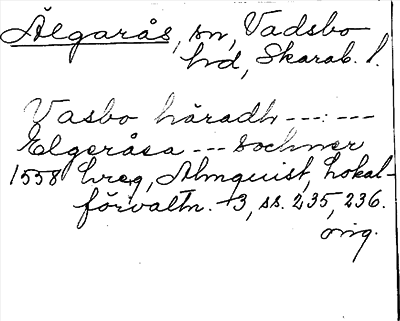 Älgarås, sn, Vadsbo
hd, Skarab. l.
Vasbo häradh ---:---
Elgeråsa --- sochner
1558 hreg, Almquist, Lokal-
förvaltn. 3, ss. 235, 236.
orig.